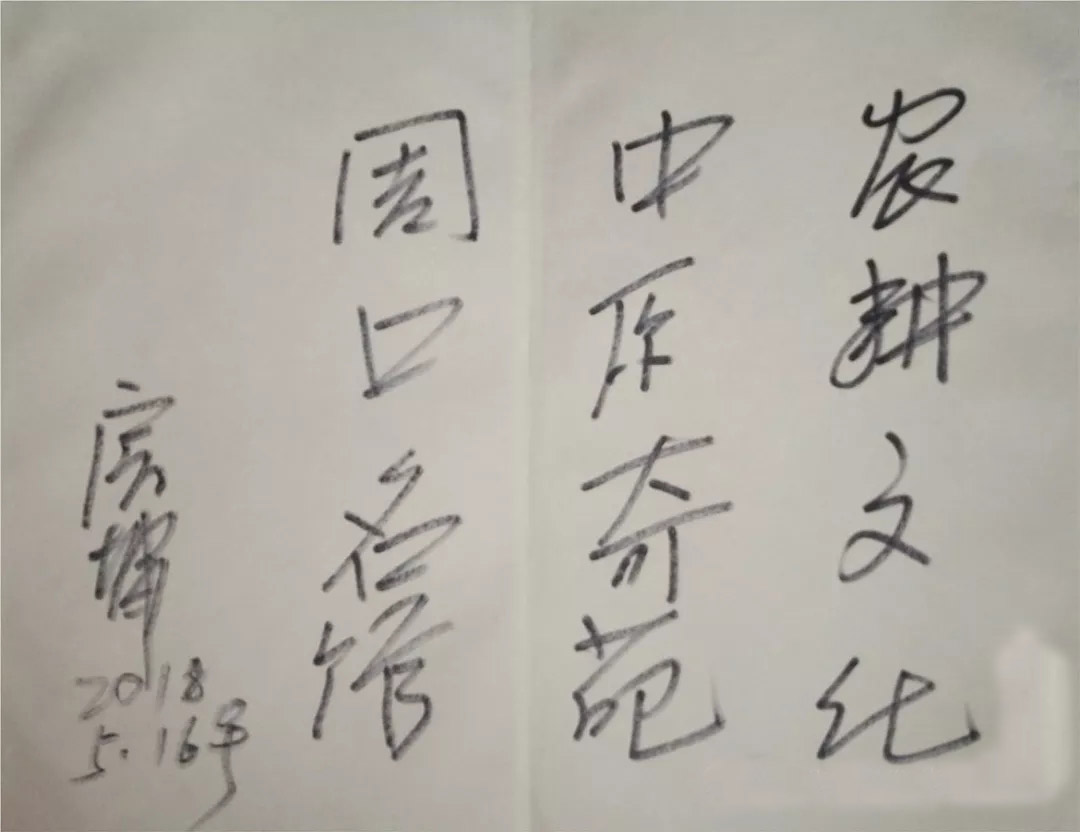 农耕文化
中原奇苑
周口名馆
房坤
2018
5.16号